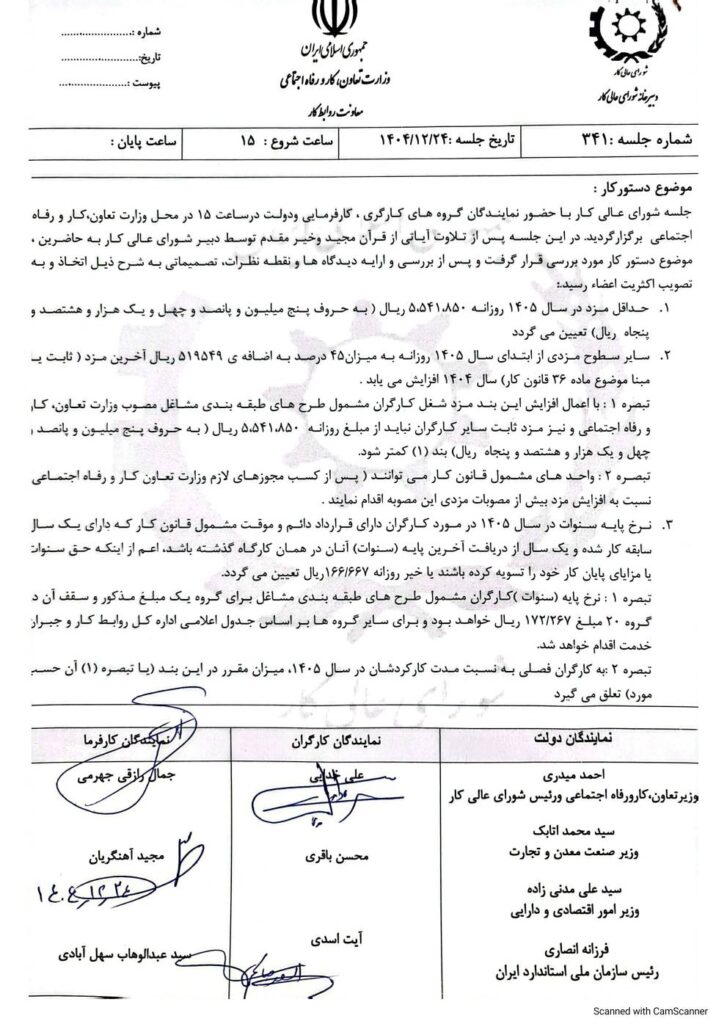 شماره :........................
تاریخ:........................
پیوست :........................
جمهوری اسلامی ایران
وزارت تعاون، کار و رفاه اجتماعی
معاونت روابط کار
شورای عالی کار
دبیرخانه شورای عالی کار
شماره جلسه :۳۴۱ تاریخ جلسه :۱۴۰۴/۱۲/۲۴ ساعت شروع : ۱۵ ساعت پایان :
موضوع دستورکار :
جلسه شورای عالی کار با حضور نمایندگان گروه های کارگری ، کارفرمایی ودولت درساعت ۱۵ در محل وزارت تعاون،کار و رفاه
اجتماعی برگزارگردید. در این جلسه پس از تلاوت آیاتی از قرآن مجید وخیر مقدم توسط دبیر شورای عالی کار به حاضرین ،
موضوع دستور کار مورد بررسی قرار گرفت و پس از بررسی و ارایه دیدگاه ها و نقطه نظرات، تصمیماتی به شرح ذیل اتخاذ و به
تصویب اکثریت اعضاء رسید:
۱. حداقل مزد در سال ۱۴۰۵ روزانه ۵،۵۴۱،۸۵۰ ریال ( به حروف پنج میلیون و پانصد و چهل و یک هزار و هشتصد و
پنجاه ریال) تعیین می گردد
۲. سایر سطوح مزدی از ابتدای سال ۱۴۰۵ روزانه به میزان۴۵ درصد به اضافه ی ۵۱۹۵۴۹ ریال آخرین مزد ( ثابت یـ
مبنا موضوع ماده ۳۶ قانون کار) سال ۱۴۰۴ افزایش می یابد .
تبصره ۱ : با اعمال افزایش این بند مزد شغل کارگران مشمول طرح های طبقه بندی مشاغل مصوب وزارت تعاون، کار
و رفاه اجتماعی و نیز مزد ثابت سایر کارگران نباید از مبلغ روزانه ۵،۵۴۱،۸۵۰ ریال ( به حروف پنج میلیون و پانصد و
چهل و یک هزار و هشتصد و پنجاه ریال) بند (۱) کمتر شود.
تبصره ۲ : واحد های مشمول قانون کار می توانند ( پس از کسب مجوزهای لازم وزارت تعاون کار و رفاه اجتماعی
نسبت به افزایش مزد بیش از مصوبات مزدی این مصوبه اقدام نمایند .
۳. نرخ پایه سنوات در سال ۱۴۰۵ در مورد کارگران دارای قرارداد دائم و موقت مشمول قانون کار که دارای یک سال
سابقه کار شده و یک سال از دریافت آخرین پایه (سنوات) آنان در همان کارگاه گذشته باشد، اعم از اینکه حق سنوات
یا مزایای پایان کار خود را تسویه کرده باشند یا خیر روزانه ۱۶۶/۶۶۷ریال تعیین می گردد.
تبصره ۱ : نرخ پایه (سنوات )کارگران مشمول طرح های طبقه بندی مشاغل برای گروه یک مبلغ مذکور و سقف آن د
گروه ۲۰ مبلغ ۱۷۲/۲۶۷ ریال خواهد بود و برای سایر گروه ها بر اساس جدول اعلامی اداره کل روابط کار و جبران
خدمت اقدام خواهد شد.
تبصره ۲ :به کارگران فصلی به نسبت مدت کارکردشان در سال ۱۴۰۵، میزان مقرر در این بند (یا تبصره (۱) آن حسب
مورد) تعلق می گیرد
نمایندگان دولت نمایندگان کارگران نمایندگان کارفرما
احمد میدری علی خدایی جمال رازقی جهرمی
وزیرتعاون،کارورفاه اجتماعی ورئیس شورای عالی کار
سید محمد اتابک
وزیر صنعت معدن و تجارت محسن باقری مجید آهنگریان
۱۴۰۴/۱۲/۲۴
سید علی مدنی زاده
وزیر امور اقتصادی و دارایی
فرزانه انصاری آیت اسدی سید عبدالوهاب سهل آبادی
رئیس سازمان ملی استاندارد ایران
Scanned with CamScanner